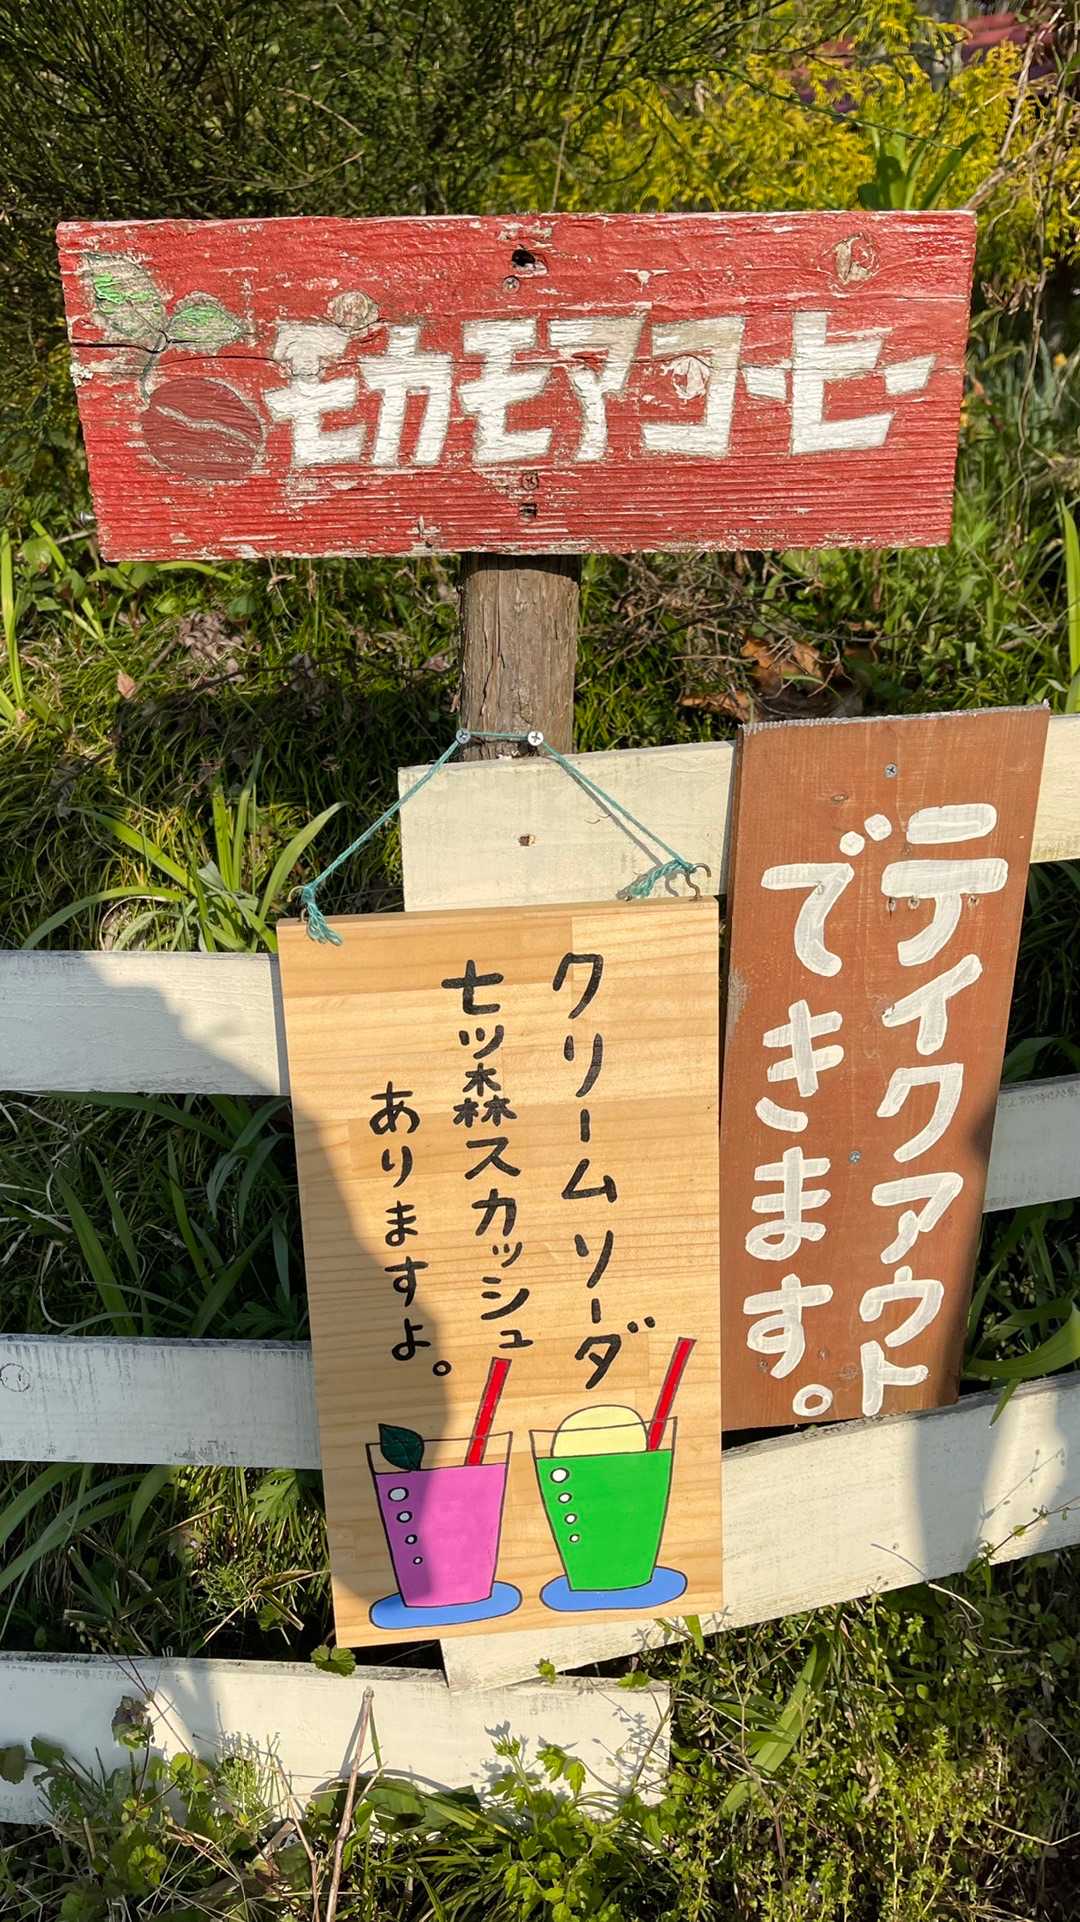 モカモアコーヒー
テイクアウト
できます。
クリームソーダ
七ツ森スカッシュ
ありますよ。